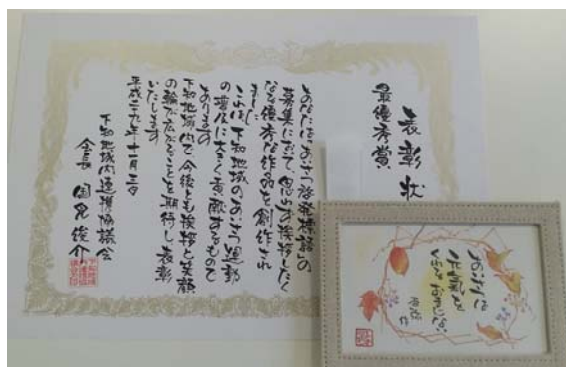 表彰状
最優秀賞
あなたは「あいさつ啓発標語」の
募集において思わず挨拶したく
なる優秀な作品を創作され
ました
これは、下知地域のあいさつ運動
の増進に大きく貢献するもので
あります
下知地域内で今後とも挨拶と笑顔
の輪が広がることを期待し表彰
いたします
平成二十九年十一月三日
下知地域内連携協議会
会長 国見俊介
あいさつは
元気が